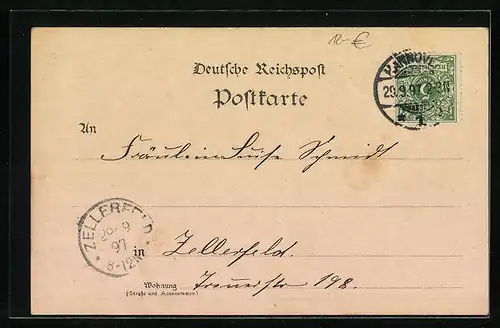 12-€
Deutsche Reichspost
Postkarte
HANNOVER
29.9.97
* 1
An
Fräulein Luise Schmidt
ZELLERFELD
9
97
8-12
in
Zellerfeld.
198.
Wohnung
(Straße und Hausnummer)